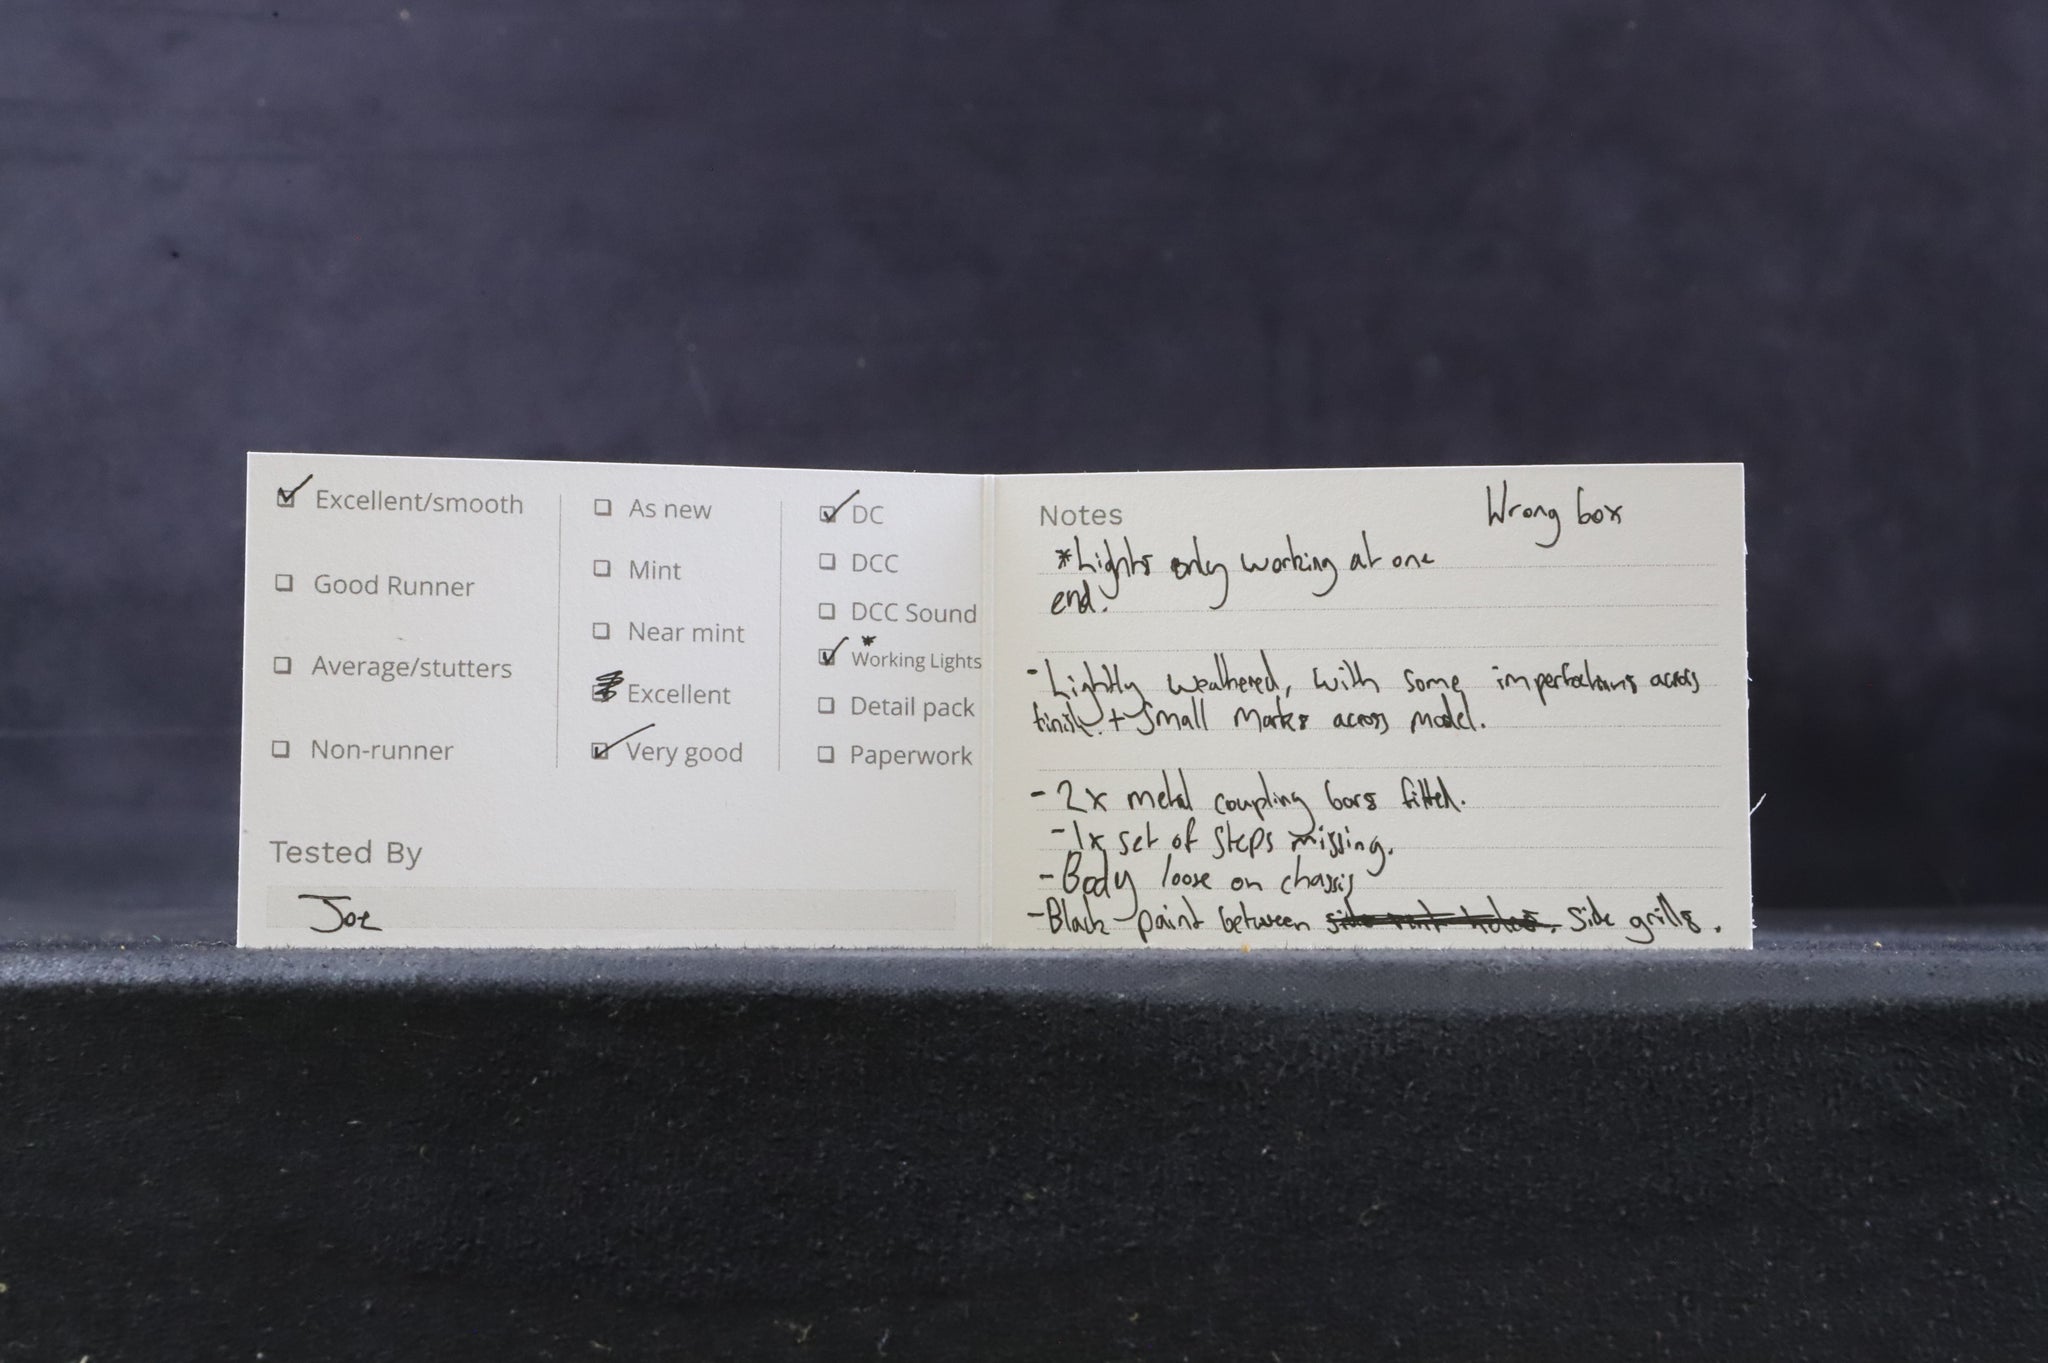 Excellent/smooth
Good Runner
Average/stutters
Non-runner
As new
Mint
Near mint
Excellent
Very good
DC
DCC
DCC Sound
*
Working Lights
Detail pack
Paperwork
Tested By
Joe
Wrong box
Notes
*Lights only working at one
end.
- Lightly weathered, with some imperfections across
finish. + Small marks across model.
- 2x metal coupling bars fitted.
- 1x set of steps missing.
- Body loose on chassis
- Black paint between side grills.